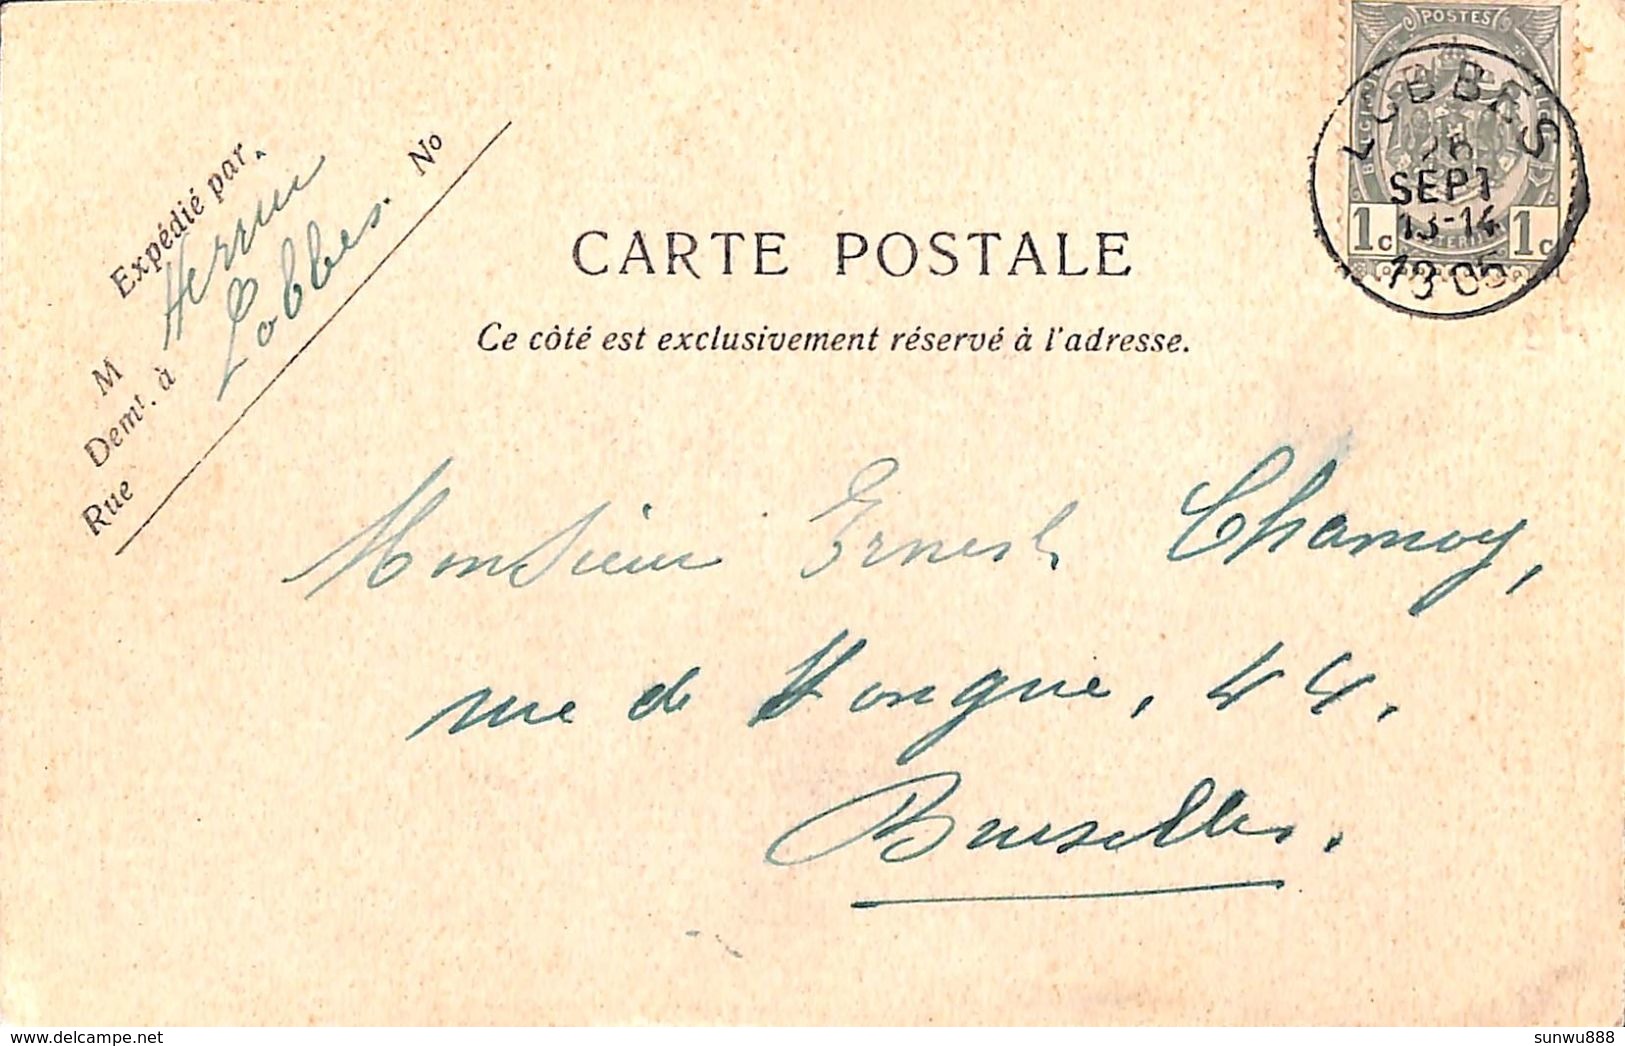 POSTES
LOBBES
26
SEPT
13-14
1905
1c 1c
Expédié par
M
Lobbes.
Demt. à
Rue
No
CARTE POSTALE
Ce côté est exclusivement réservé à l'adresse.
Monsieur Ernest Chamoy,
rue de Hongrie, 44.
Bruxelles.
sunwu888